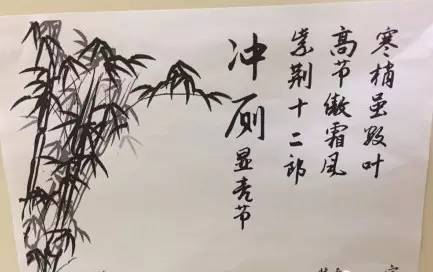 寒梢虽数叶
高节傲霜风
紫荆十二郎
冲厕显亮节